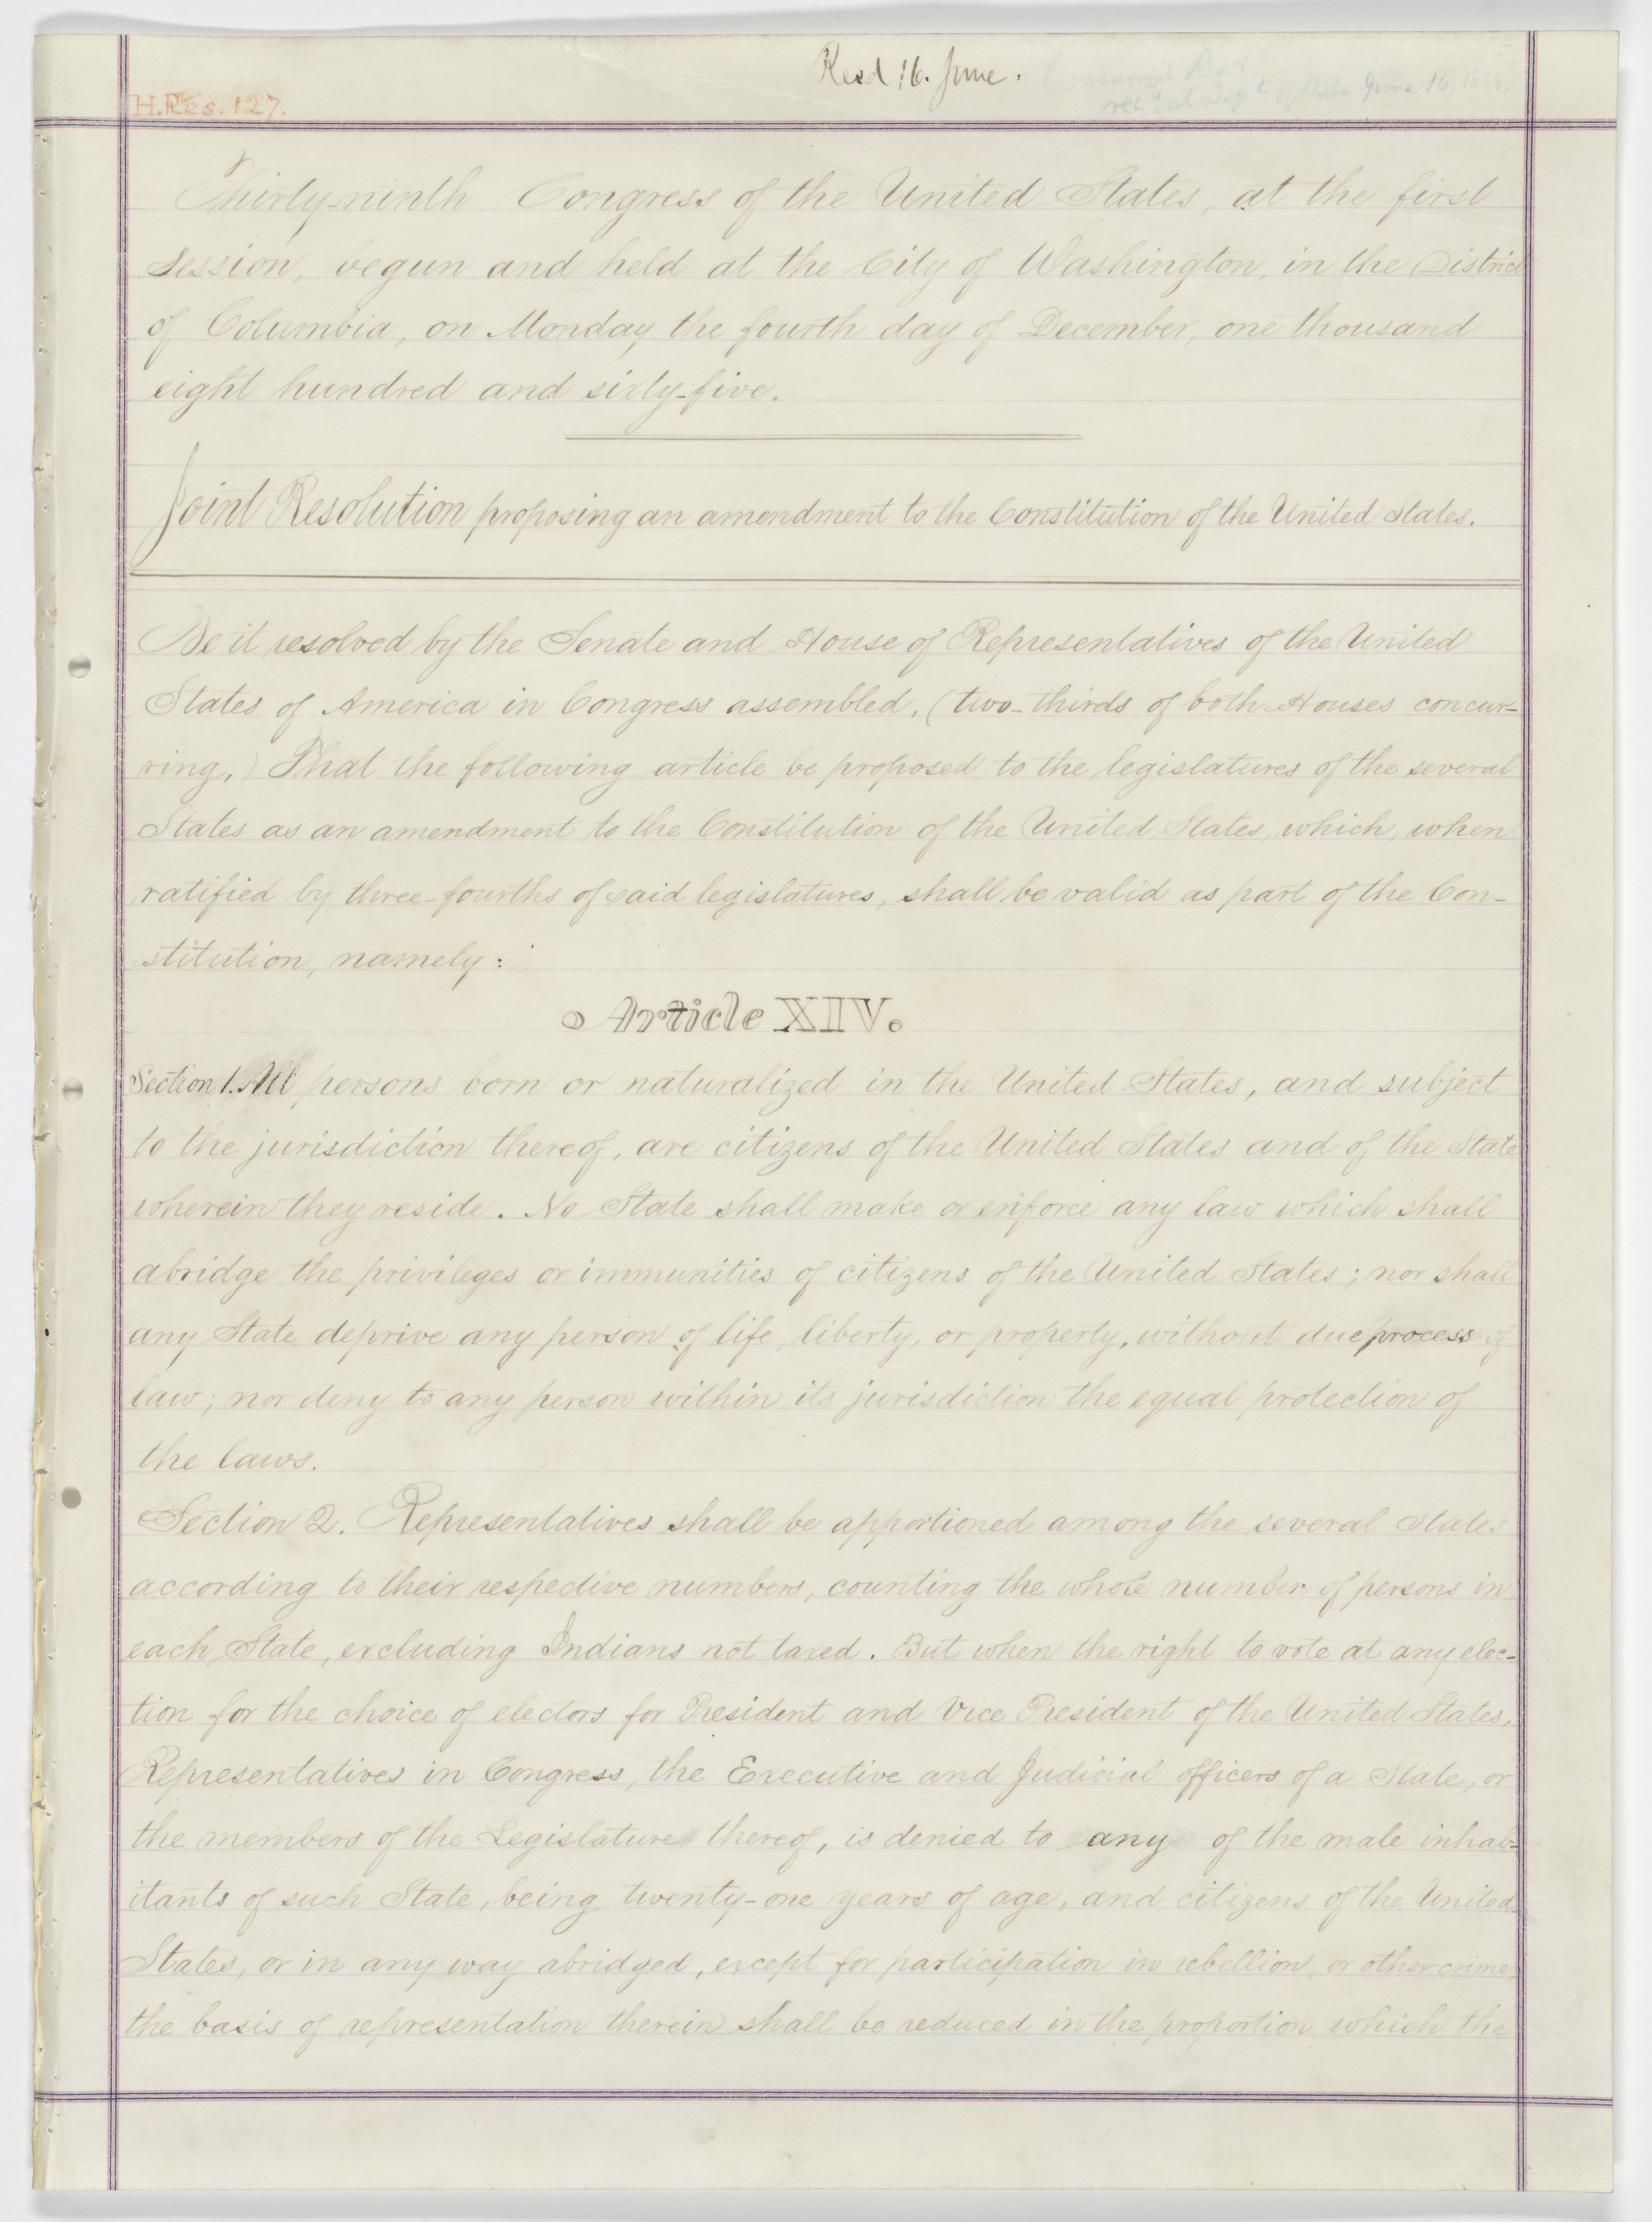 Recd 16. June.
recd at Dept of State June 16, 1866.
H.Res. 127.
Thirty-ninth Congress of the United States, at the first
Session, begun and held at the City of Washington, in the District
of Columbia, on Monday the fourth day of December, one thousand
eight hundred and sixty-five.
Joint Resolution proposing an amendment to the Constitution of the United States.
Be it resolved by the Senate and House of Representatives of the United
States of America in Congress assembled, (two-thirds of both Houses concur-
ring,) That the following article be proposed to the legislatures of the several
States as an amendment to the Constitution of the United States, which, when
ratified by three-fourths of said legislatures, shall be valid as part of the Con-
stitution, namely:
Article XIV.
Section 1. All persons born or naturalized in the United States, and subject
to the jurisdiction thereof, are citizens of the United States and of the State
wherein they reside. No State shall make or enforce any law which shall
abridge the privileges or immunities of citizens of the United States; nor shall
any State deprive any person of life, liberty, or property, without due process of
law; nor deny to any person within its jurisdiction the equal protection of
the laws.
Section 2. Representatives shall be apportioned among the several States
according to their respective numbers, counting the whole number of persons in
each State, excluding Indians not taxed. But when the right to vote at any elec-
tion for the choice of electors for President and Vice President of the United States,
Representatives in Congress, the Executive and Judicial officers of a State, or
the members of the Legislature thereof, is denied to any of the male inhab-
itants of such State, being twenty-one years of age, and citizens of the United
States, or in any way abridged, except for participation in rebellion, or other crime,
the basis of representation therein shall be reduced in the proportion which the